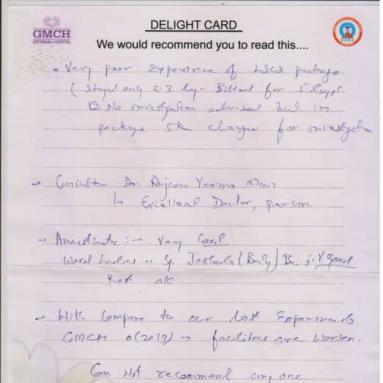 GMCH
GEETANJALI HOSPITAL
DELIGHT CARD
We would recommend you to read this....
- Very poor Experience of LSCS package.
( Stayed only 2-3 day - Billed for 5 days
No investigation advised but in
package 5k charges for investigation
→ Consultant Dr. Anjana Verma Mam
↳ Excellent Doctor, person
→ Anaesthetic :→ Very Good
→ With compare to our last Experience
GMCH (2013) → facilities are worsen.
Can not recommend any one